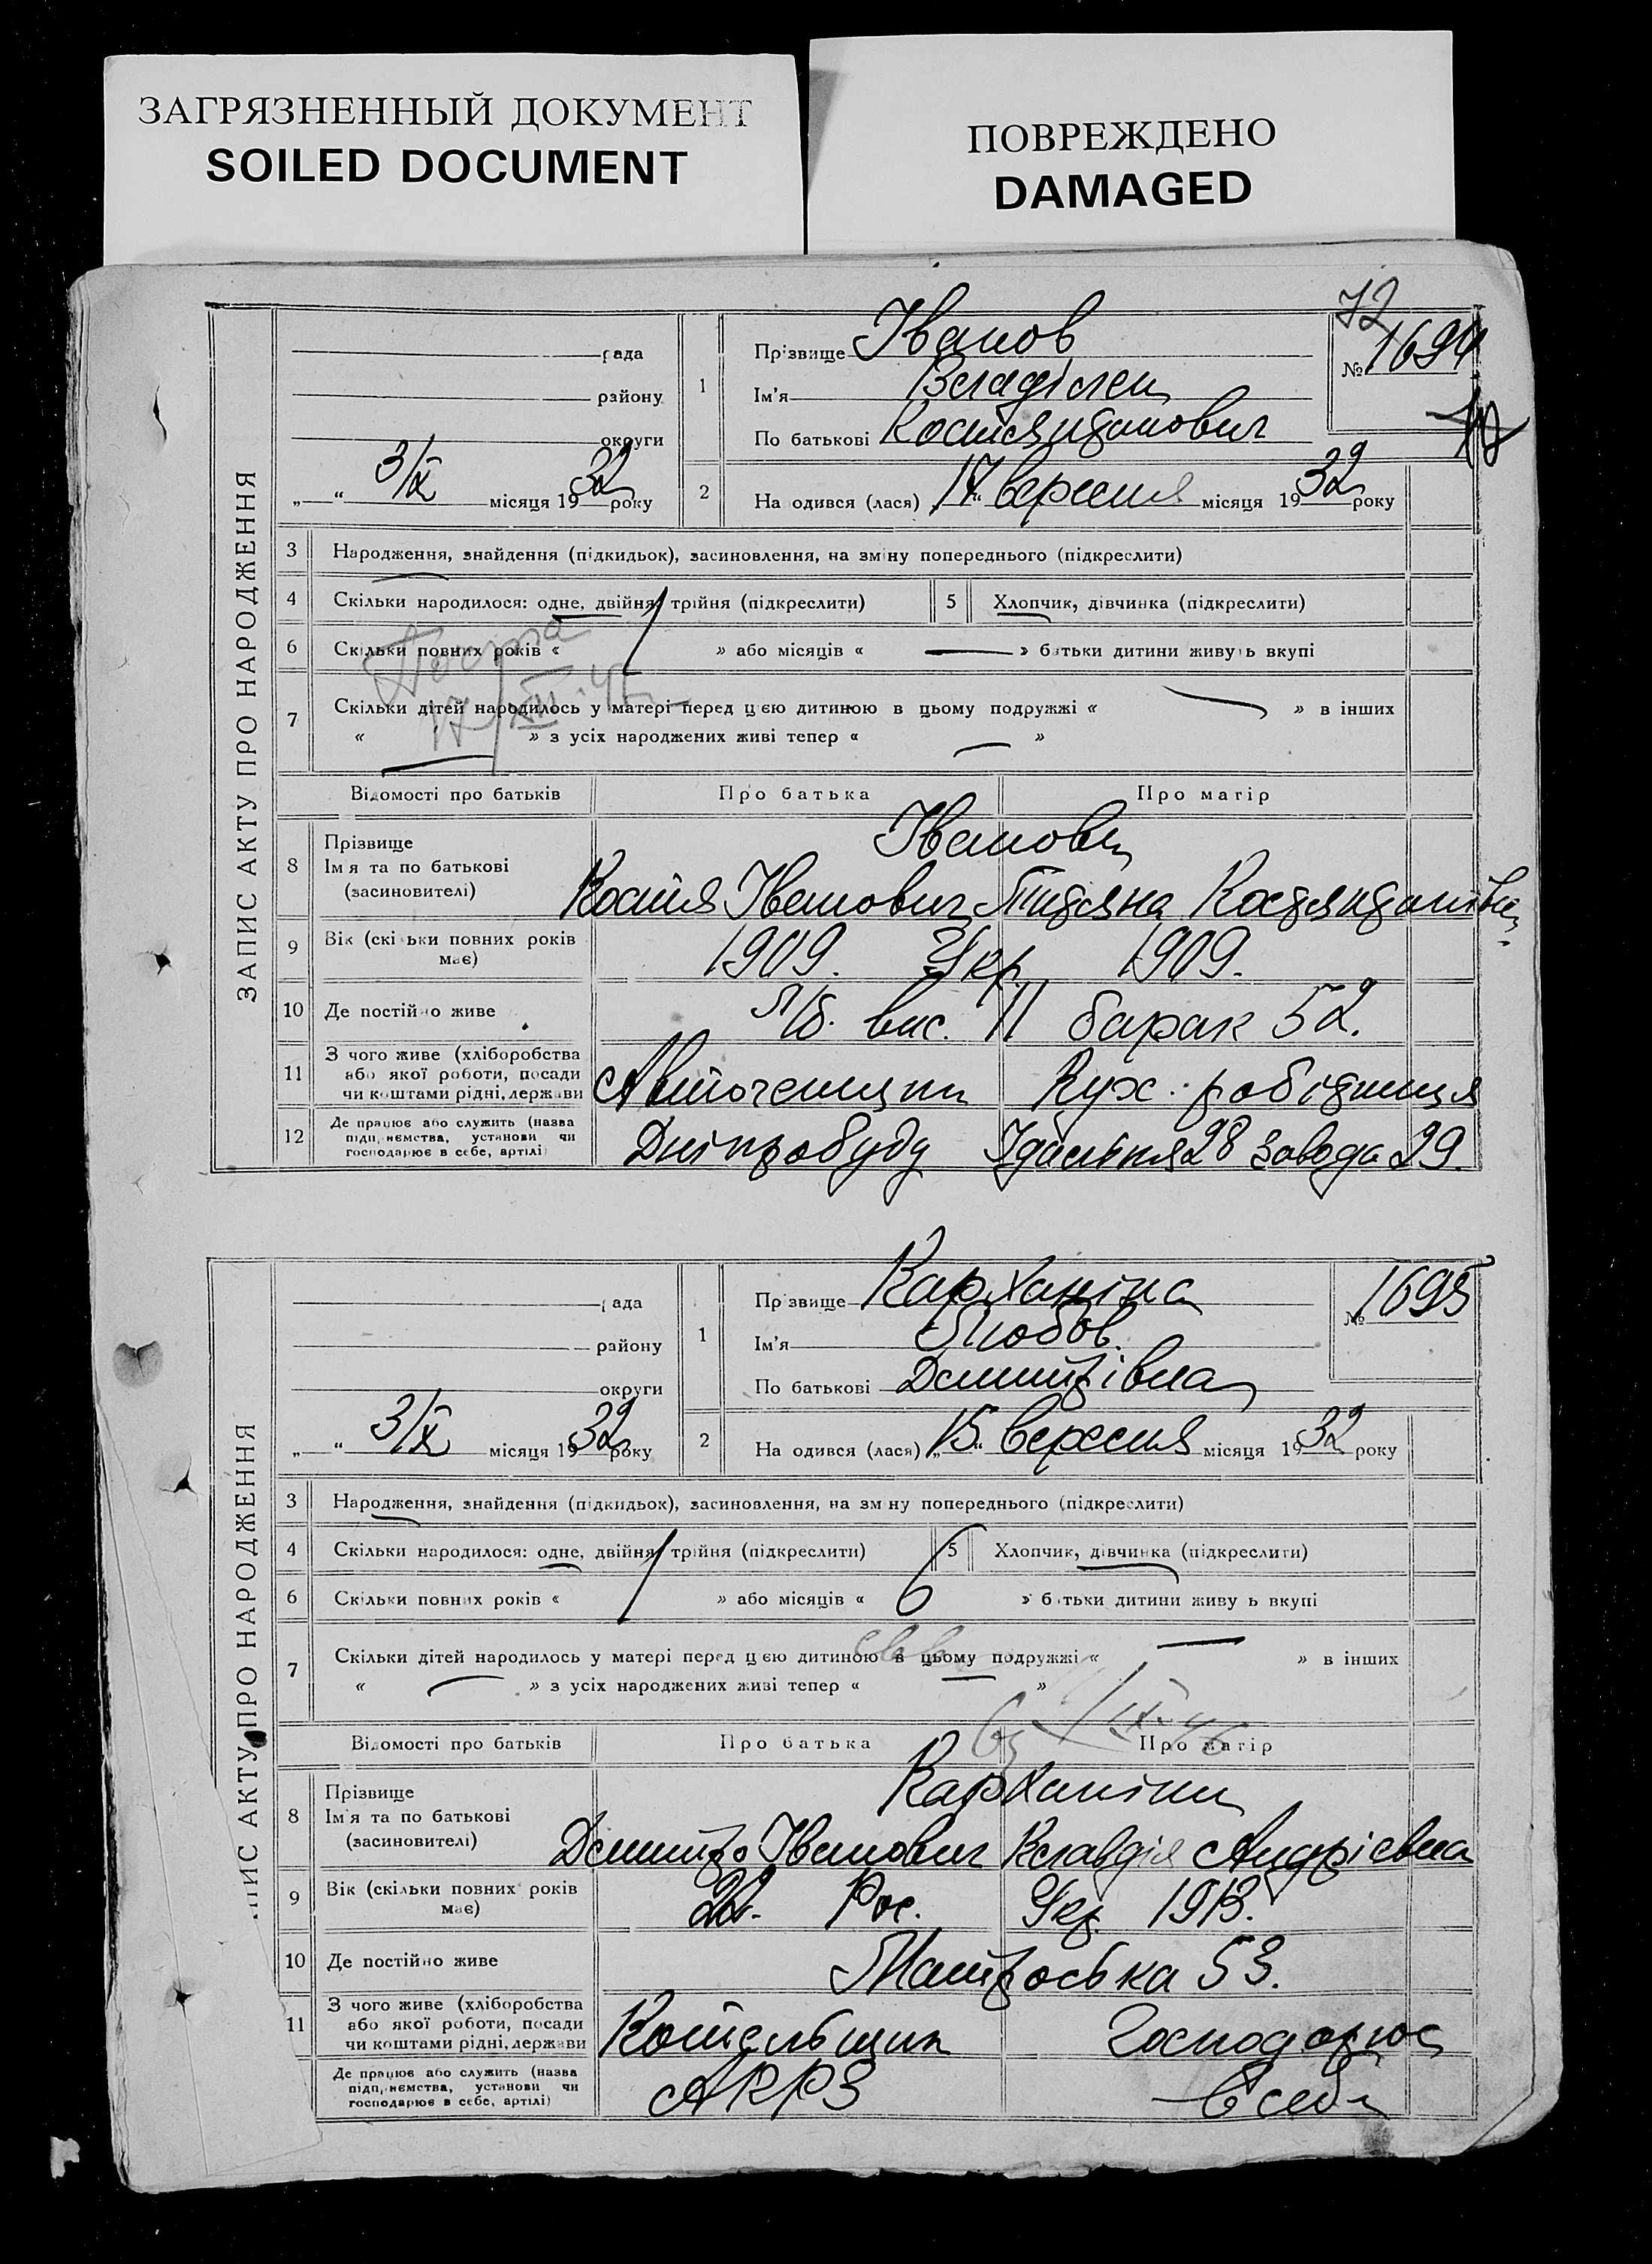 ЗАГРЯЗНЕННЫЙ ДОКУМЕНТ
SOILED DOCUMENT
ПОВРЕЖДЕНО
DAMAGED
72
ЗАПИС АКТУ ПРО НАРОДЖЕННЯ
рада
району
округи
„ “ 3/X місяця 1932 року
1
Прізвище Іванов
Ім'я Владілен
По батькові Костянтинович
№ 1694
2
На одився (лася) „17“ вересня місяця 1932 року
3 Народження, знайдення (підкидьок), засиновлення, на зміну попереднього (підкреслити)
4 Скільки народилося: одне, двійня, трійня (підкреслити)
5 Хлопчик, дівчинка (підкреслити)
6 Скільки повних років « » або місяців « » батьки дитини живуть вкупі
7 Скільки дітей народилось у матері перед цією дитиною в цьому подружжі « » в інших
« » з усіх народжених живі тепер « »
Відомості про батьків Про батька Про матір
8 Прізвище
Ім'я та по батькові
(засиновителі)
Іванови
Костя Іванович Титяна Костянтинівна
9 Вік (скільки повних років має)
1909. Укр. 1909.
10 Де постійно живе
Л/б. вис. 11 барак 52.
11 З чого живе (хліборобства
або якої роботи, посади
чи коштами рідні, держави
Кух. робітниця
12 Де працює або служить (назва
підприємства, установи чи
господарює в себе, артілі)
Дніпробуду Їдальня 28 завода 29.
ЗАПИС АКТУ ПРО НАРОДЖЕННЯ
рада
району
округи
„ “ 3/X місяця 1932 року
1
Прізвище Карханіна
Ім'я Любов.
По батькові Дмитрівна
№ 1695
2
На одився (лася) „15“ вересня місяця 1932 року
3 Народження, знайдення (підкидьок), засиновлення, на зміну попереднього (підкреслити)
4 Скільки народилося: одне, двійня, трійня (підкреслити)
5 Хлопчик, дівчинка (підкреслити)
6 Скільки повних років « » або місяців « 6 » батьки дитини живуть вкупі
7 Скільки дітей народилось у матері перед цією дитиною в цьому подружжі « » в інших
« » з усіх народжених живі тепер « »
Відомості про батьків Про батька Про матір
8 Прізвище
Ім'я та по батькові
(засиновителі)
Карханіни
Дмитро Іванович Клавдія Андрієвна
9 Вік (скільки повних років має)
22. Рос. Укр. 1913.
10 Де постійно живе
Матроська 53.
11 З чого живе (хліборобства
або якої роботи, посади
чи коштами рідні, держави
Котельщик Господарює
Де працює або служить (назва
підприємства, установи чи
господарює в себе, артілі)
АРРЗ в себе